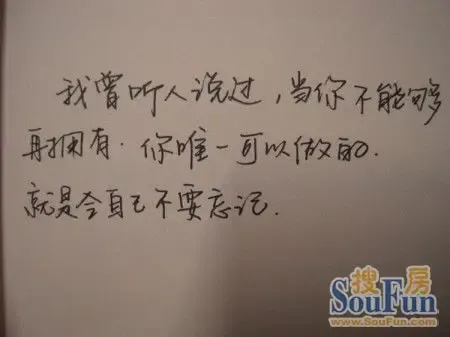 我曾听人说过，当你不能够
再拥有．你唯一可以做的．
就是令自己不要忘记．
搜房
SouFun
www.SouFun.com